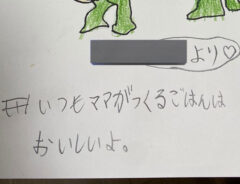 より♡
いつもママがつくるごはんは
おいしいよ。